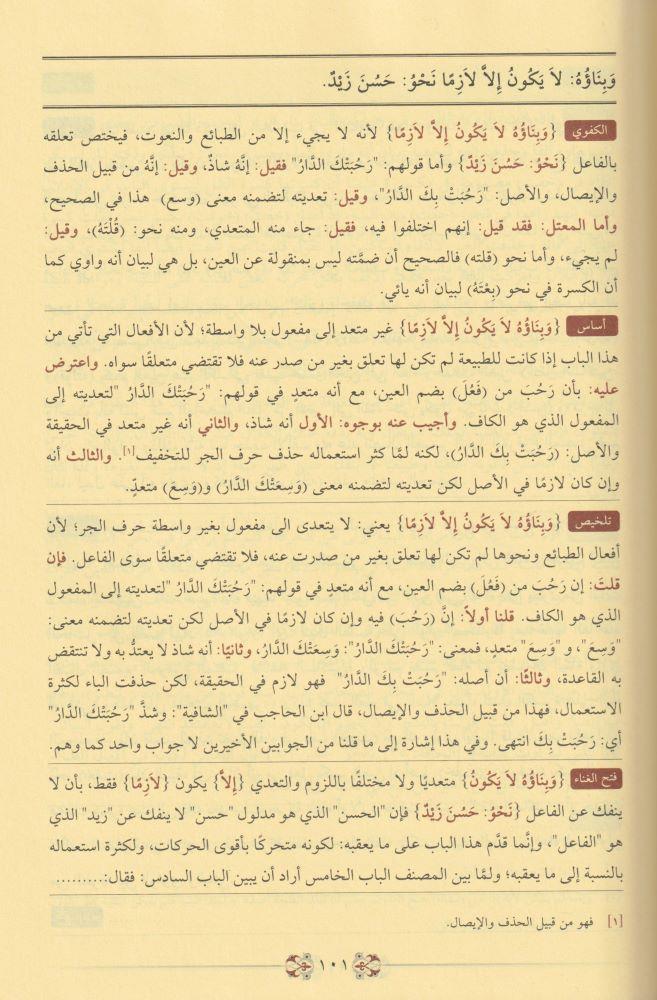 وَبِنَاؤُهُ: لاَ يَكُونُ إِلاَّ لاَزِمًا نَحْوُ: حَسُنَ زَيْدٌ.
الكفوي {وَبِنَاؤُهُ لاَ يَكُونُ إِلاَّ لاَزِمًا} لأنه لا يجيء إلا من الطبائع والنعوت، فيختص تعلقه
بالفاعل {نَحْوُ: حَسُنَ زَيْدٌ} وأما قولهم: "رَحُبَتْكَ الدَّارُ" فقيل: إنَّهُ شاذٌ، وقيل: إنَّهُ من قبيل الحذف
والإيصال، والأصل: "رَحُبَتْ بِكَ الدَّارُ"، وقيل: تعديته لتضمنه معنى (وسع) هذا في الصحيح،
وأما المعتل: فقد قيل: إنهم اختلفوا فيه، فقيل: جاء منه المتعدي، ومنه نحو: (قُلْتَهُ)، وقيل:
لم يجيء، وأما نحو (قلته) فالصحيح أن ضمَّته ليس بمنقولة عن العين، بل هي لبيان أنه واوي كما
أن الكسرة في نحو (بِعْتَهُ) لبيان أنه يائي.
أساس {وَبِنَاؤُهُ لاَ يَكُونُ إِلاَّ لاَزِمًا} غير متعد إلى مفعول بلا واسطة؛ لأن الأفعال التي تأتي من
هذا الباب إذا كانت للطبيعة لم تكن لها تعلق بغير من صدر عنه فلا تقتضي متعلقًا سواه. واعترض
عليه: بأن رَحُبَ من (فَعُلَ) بضم العين، مع أنه متعدٍ في قولهم: "رَحُبَتْكَ الدَّارُ "لتعديته إلى
المفعول الذي هو الكاف. وأجيب عنه بوجوه: الأول أنه شاذ، والثاني أنه غير متعد في الحقيقة
والأصل: (رَحُبَتْ بِكَ الدَّارُ)، لكنه لمَّا كثر استعماله حذف حرف الجر للتخفيف[١]. والثالث أنه
وإن كان لازمًا في الأصل لكن تعديته لتضمنه معنى (وَسِعَتْكَ الدَّارُ) و(وَسِعَ) متعدٍّ.
تلخيص {وَبِنَاؤُهُ لاَ يَكُونُ إِلاَّ لاَزِمًا} يعني: لا يتعدى الى مفعول بغير واسطة حرف الجر؛ لأن
أفعال الطبائع ونحوها لم تكن لها تعلق بغير من صدرت عنه، فلا تقتضي متعلقًا سوى الفاعل. فإن
قلت: إن رَحُبَ من (فَعُلَ) بضم العين، مع أنه متعدٍ في قولهم: "رَحُبَتْكَ الدَّارُ "لتعديته إلى المفعول
الذي هو الكاف. قلنا أولاً: إنَّ (رَحُبَ) فيه وإن كان لازمًا في الأصل لكن تعديته لتضمنه معنى:
"وَسِعَ"، و "وَسِعَ" متعدٍ، فمعنى: "رَحُبَتْكَ الدَّارُ": وَسِعَتْكَ الدَّارُ، وثانيًا: أنه شاذ لا يعتدُّ به ولا تنتقض
به القاعدة، وثالثًا: أن أصله: "رَحُبَتْ بِكَ الدَّارُ" فهو لازم في الحقيقة، لكن حذفت الباء لكثرة
الاستعمال، فهذا من قبيل الحذف والإيصال، قال ابن الحاجب في "الشافية": وشذَّ "رَحُبَتْكَ الدَّارُ"
أي: رَحُبَتْ بِكَ انتهى. وفي هذا إشارة إلى ما قلنا من الجوابين الأخيرين لا جواب واحد كما وهم.
فتح الغناء {وَبِنَاؤُهُ لاَ يَكُونُ} متعديًا ولا مختلفًا باللزوم والتعدي {إِلاَّ} يكون {لاَزِمًا} فقط، بأن لا
ينفك عن الفاعل {نَحْوُ: حَسُنَ زَيْدٌ} فإن "الحسن" الذي هو مدلول "حسن" لا ينفك عن "زيد" الذي
هو "الفاعل"، وإنَّما قدَّم هذا الباب على ما يعقبه: لكونه متحركًا بأقوى الحركات، ولكثرة استعماله
بالنسبة إلى ما يعقبه؛ ولمَّا بين المصنف الباب الخامس أراد أن يبين الباب السادس: فقال:.........
[١] فهو من قبيل الحذف والإيصال.
١٠١